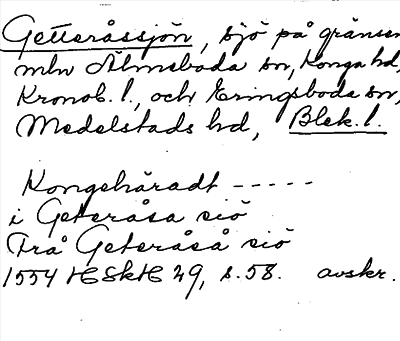 Getteråssjön, sjö på gränsen
mln Älmeboda sn, Konga hd,
Kronob. l., och Eringsboda sn,
Medelstads hd, Blek. l.
Kongehäradt -----
i Geteråsa siö
Frå Geteråså siö
1554 HSkH 29, s. 58. avskr.